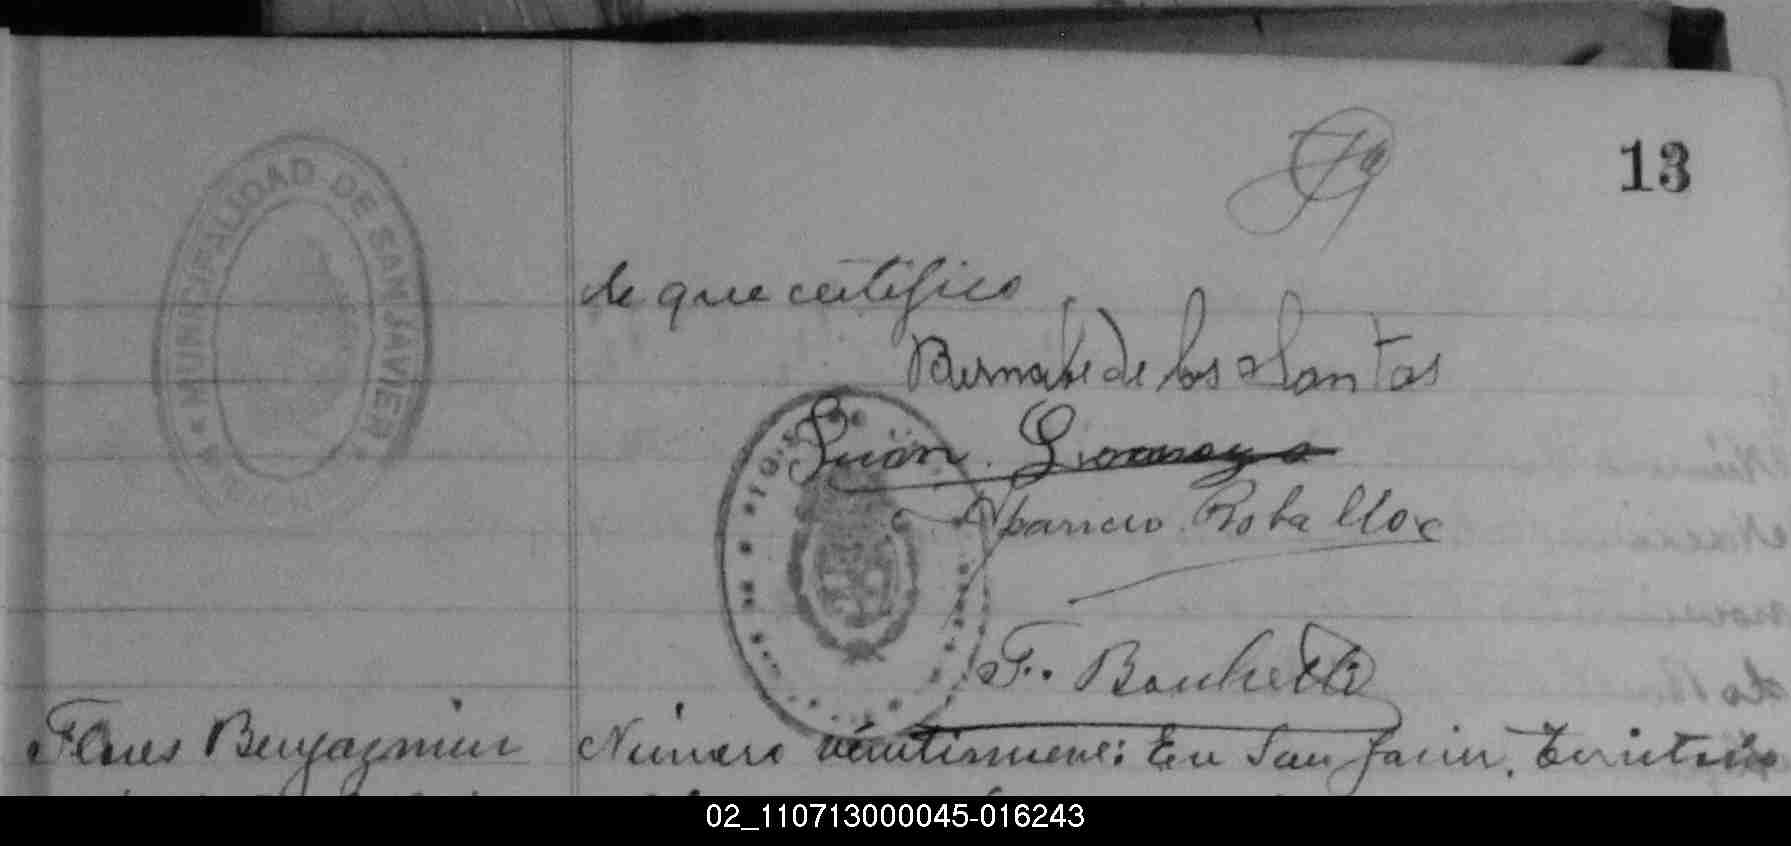 13
MUNICIPALIDAD DE SAN JAVIER
de que certifico
Bernabe de los Santos
Juan
Aparicio Roballos
F. Bonhetti
Flores Benjagmin
Número veintinueve: En San Javier, Territorio
02_110713000045-016243